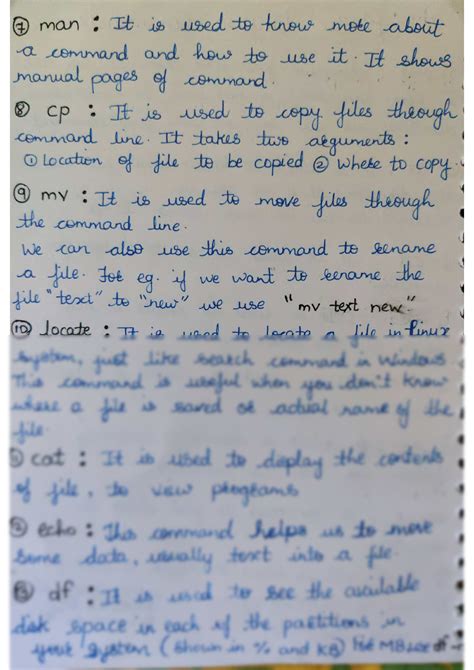 ⑦ man : It is used to know more about
a command and how to use it. It shows
manual pages of command.
⑧ cp : It is used to copy files through
command line. It takes two arguments :
① Location of file to be copied ② Where to copy.
⑨ mv : It is used to move files through
the command line.
We can also use this command to rename
a file. For eg. if we want to rename the
file "text" to "new" we use "mv text new."
⑩ locate : It is used to locate a file in Linux
system, just like search command in Windows
This command is useful when you don't know
where a file is saved or actual name of the
file.
cat : It is used to display the contents
of file, to view programs
echo : This command helps us to move
some data, usually text into a file.
df : It is used to see the available
disk space in each of the partitions in
your system (shown in % and KB) For MB use df -